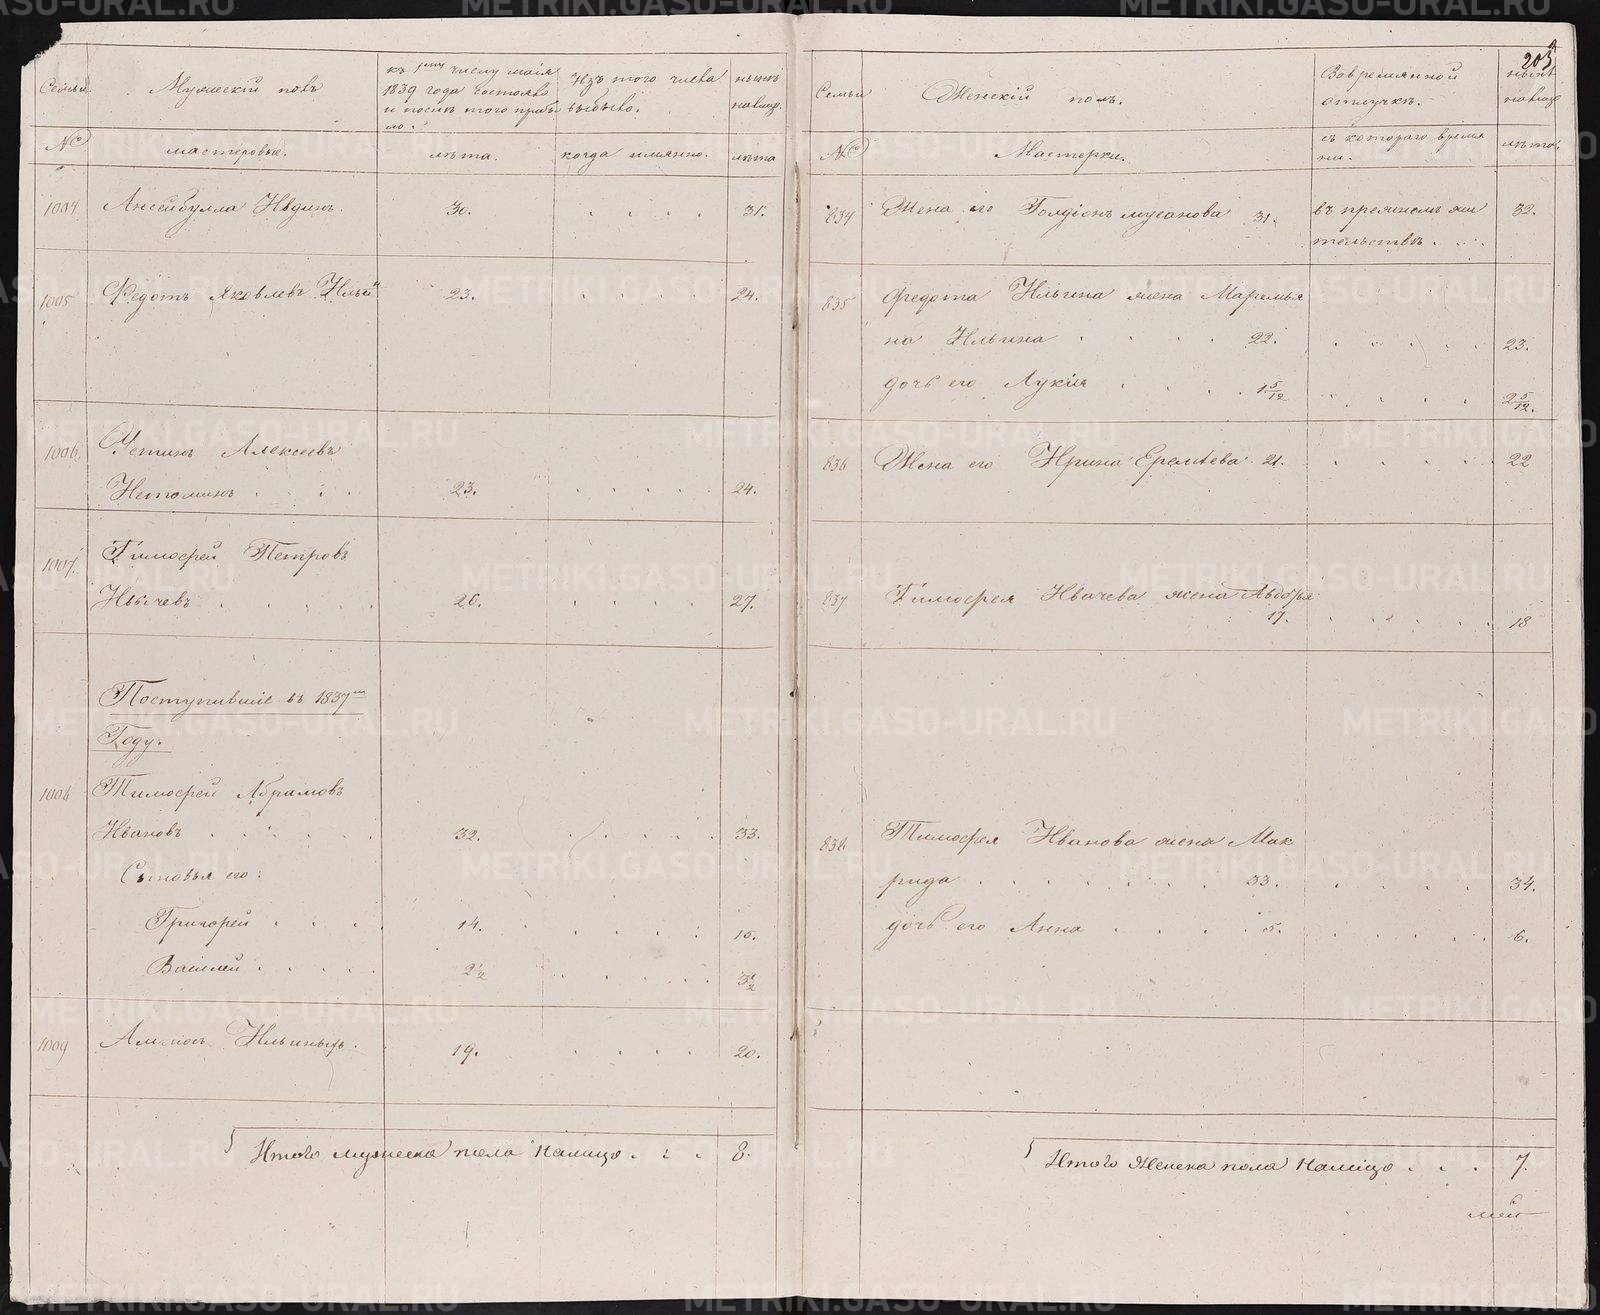 203
Семьи
Мужескій полъ
къ 1му числу маія
1839 года состояло
и послѣ того прибы
ло.
Изъ того числа
выбыло.
нынѣ
налицо.
№
мастеровые.
лѣта.
когда имянно.
лѣта
1004
Ивдинъ.
30.
31.
1005
Федотъ Яковлевъ Ильи
23.
24.
1006.
Алексеевъ
23.
24.
1007.
Тимофей Петровъ
Ивачевъ
26.
27.
Поступившіе въ 1837м
Году.
1008
Тимофей Абрамовъ
Ивановъ
32.
33.
Сыновья его:
Григорей
14.
15.
Василей
2 1/2
3 1/2
1009
Ильиныхъ.
19.
20.
Итого мужеска пола налицо
8.
Семьи
Женскій полъ.
Во временной
отлучкѣ.
нынѣ
налицо
№
Мастерки.
съ котораго време
ни.
лѣта.
834
Жена его мусанова 31.
въ прежнемъ жи
тельствѣ.
32.
835
Федота Ильина жена Маремья
на Ильина 22.
23.
дочь его Лукія 1 5/12
2 5/12.
836
Жена его Ирина Еремѣева 21.
22
837
Тимофея Ивачева жена Авдотья
17.
18
838
Тимофея Иванова жена Мак
рида 33.
34.
дочь его Анна 5.
6.
Итого Женска пола налицо
7.